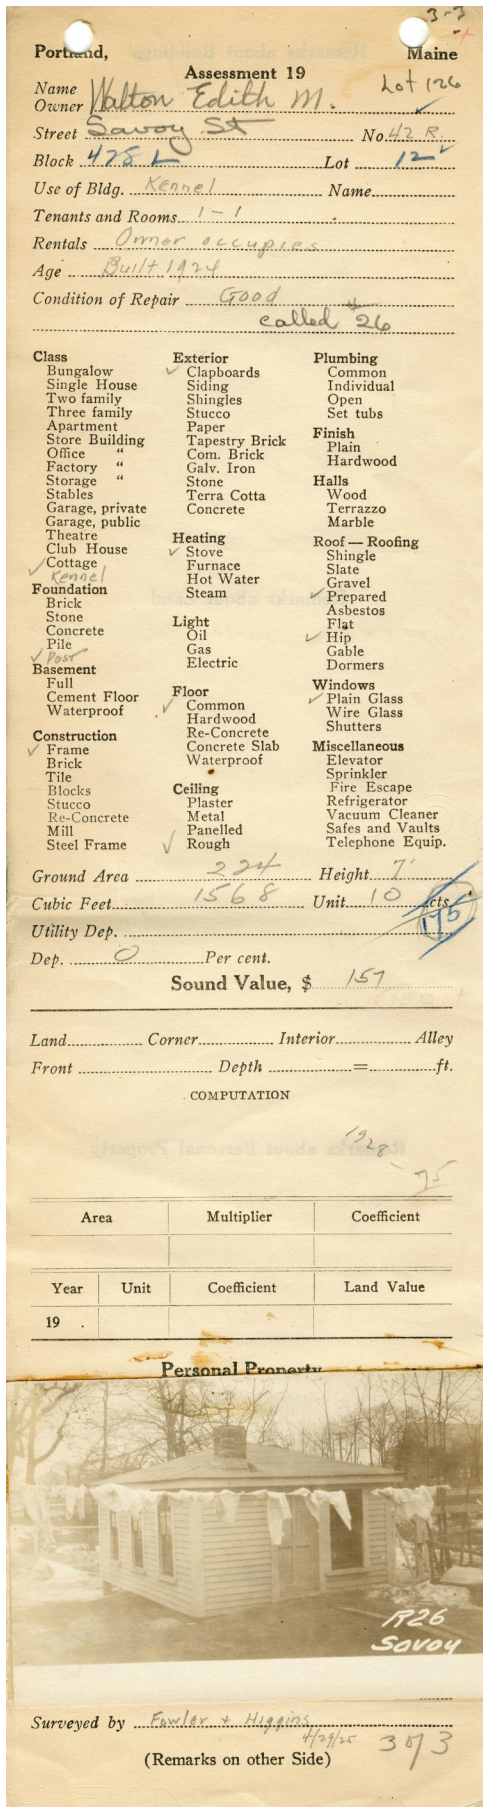 3-3
Portland, Maine
Assessment 19
Lot 126
Name
Owner Walton Edith M.
Street Savoy St No. 42 R.
Block 428 L Lot 12
Use of Bldg. Kennel Name
Tenants and Rooms 1-1
Rentals Owner occupies
Age Built 1924
Condition of Repair Good
called #26
Class
Bungalow
Single House
Two family
Three family
Apartment
Store Building
Office "
Factory "
Storage "
Stables
Garage, private
Garage, public
Theatre
Club House
✓ Cottage
Kennel
Foundation
Brick
Stone
Concrete
Pile
✓ Post
Basement
Full
Cement Floor
Waterproof
Construction
✓ Frame
Brick
Tile
Blocks
Stucco
Re-Concrete
Mill
Steel Frame
Exterior
✓ Clapboards
Siding
Shingles
Stucco
Paper
Tapestry Brick
Com. Brick
Galv. Iron
Stone
Terra Cotta
Concrete
Heating
✓ Stove
Furnace
Hot Water
Steam
Light
Oil
Gas
Electric
Floor
✓ Common
Hardwood
Re-Concrete
Concrete Slab
Waterproof
Ceiling
Plaster
Metal
Panelled
✓ Rough
Plumbing
Common
Individual
Open
Set tubs
Finish
Plain
Hardwood
Halls
Wood
Terrazzo
Marble
Roof — Roofing
Shingle
Slate
Gravel
✓ Prepared
Asbestos
Flat
✓ Hip
Gable
Dormers
Windows
✓ Plain Glass
Wire Glass
Shutters
Miscellaneous
Elevator
Sprinkler
Fire Escape
Refrigerator
Vacuum Cleaner
Safes and Vaults
Telephone Equip.
Ground Area 224 Height 7'
Cubic Feet 1568 Unit 10 cts.
175
Utility Dep.
Dep. 0 Per cent.
Sound Value, $ 157
Land Corner Interior Alley
Front Depth = ft.
COMPUTATION
1928 - 75
Area Multiplier Coefficient
Year Unit Coefficient Land Value
19 .
Personal Property
R26
Savoy
Surveyed by Fowler + Higgins
4/29/25 3 of 3
(Remarks on other Side)